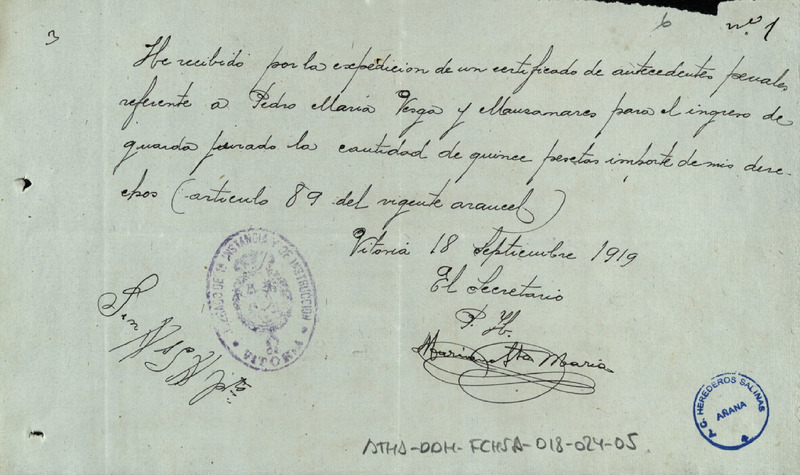 3
6 nº 1
He recibido por la expedicion de un certificado de antecedentes penales
referente a Pedro Maria Vesga y Mausamares para el ingreso de
guarda jurado la cantidad de quince pesetas importe de mis dere-
chos (articulo 89 del vigente arancel)
Vitoria 18 Septiembre 1919
El Secretario
P. H.
Mario Sta Maria
JUZGADO DE 1ª INSTANCIA Y DE INSTRUCCION
VITORIA
Son
A.G. HEREDEROS SALINAS
AÑANA
ATHA-DDH-FCHSA-018-024-05